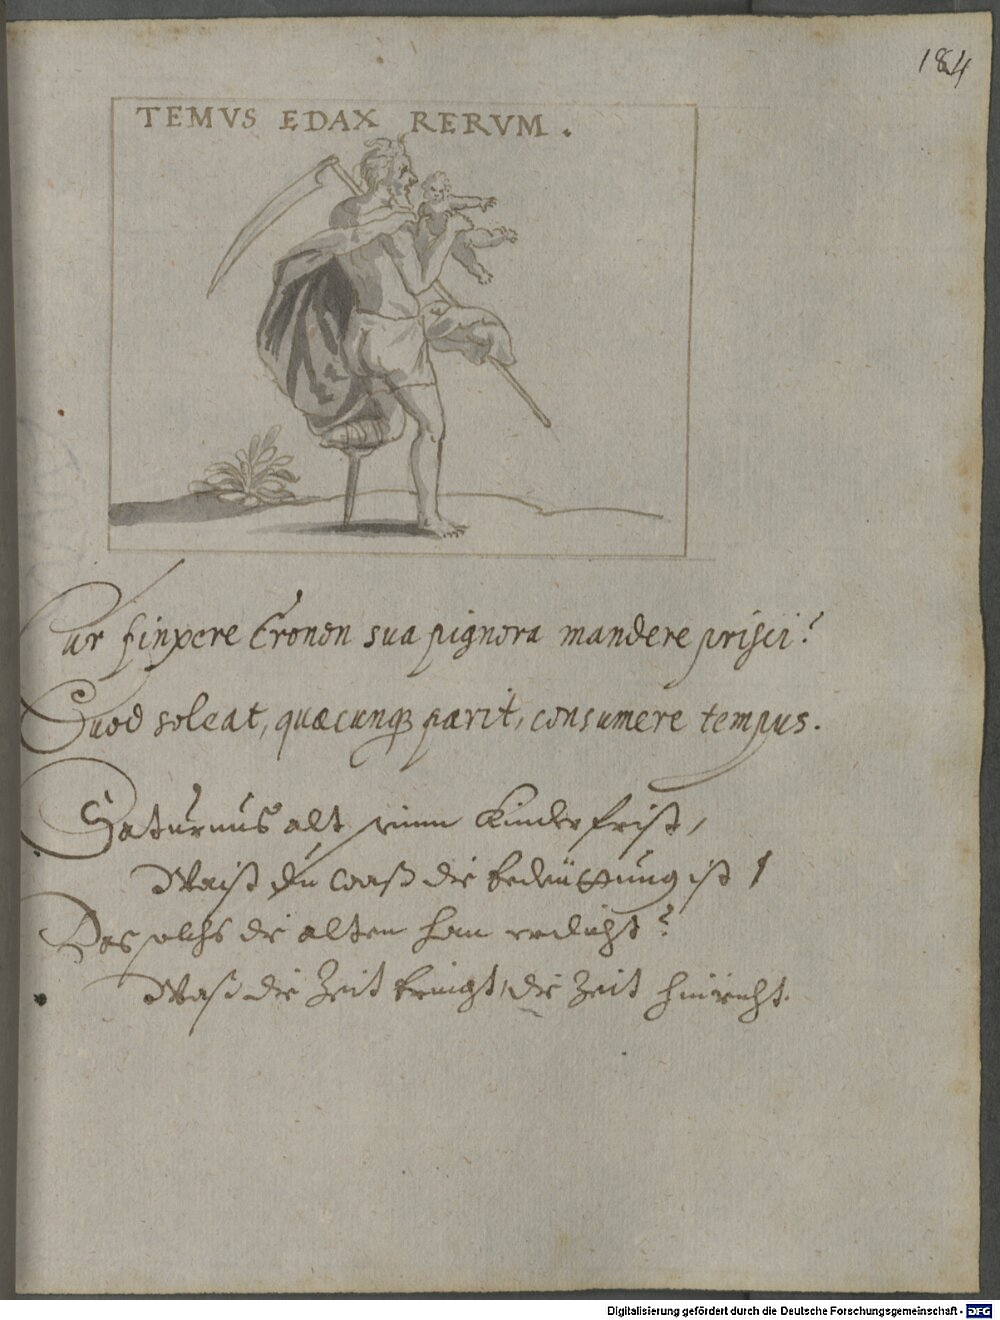 184
TEMVS EDAX RERVM.
Cur finxere Cronon sua pignora mandere prisci?
Quod soleat, quæcunq; parit, consumere tempus.
Saturnus alt seine Kinder frist,
Waist du waß die bedeüttung ist
Das solchs die alten han erdicht?
Waß die Zeit bringt, die Zeit hinricht.
Digitalisierung gefördert durch die Deutsche Forschungsgemeinschaft - DFG